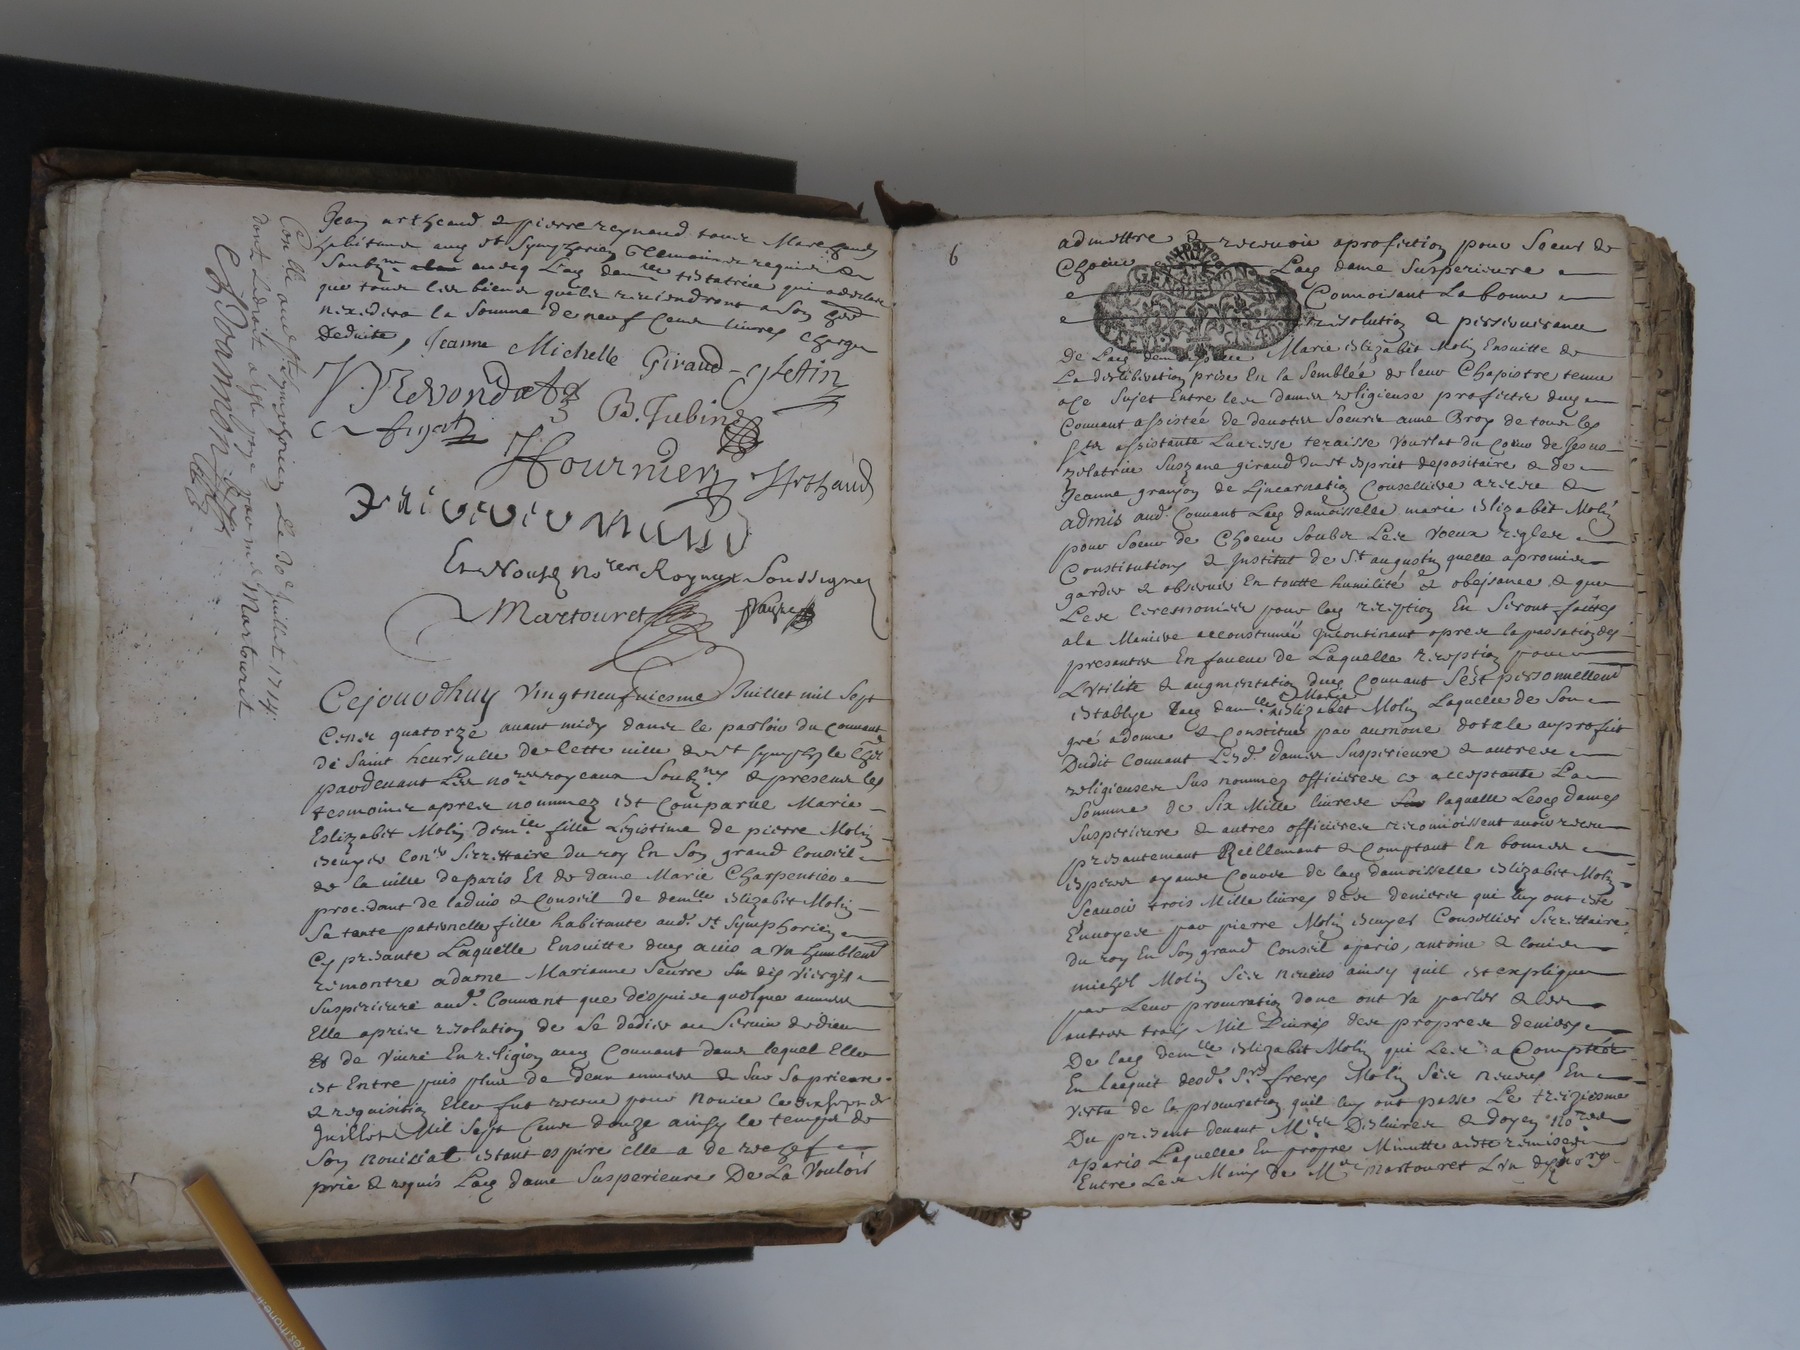 Jean artheaud & pierre reynaud tous Marchands
habitans aud st Symphorien tesmoins requis &
Soubzne avecq Lad damlle testatrice qui a desclaré
que tous les biens quelle
la Somme de neuf Cens livres Charges
Deduites, Jeanne Michelle Giraud
Revondat
B. Jubin
figat
Fournier Arthaud
Et Nous nores Royaux Soussignez
Martouret
Conllé au st Symphorien Le 30e Juillet 1714
dont Ledroit a esté payé par me Martouret
Cejourdhuy Vingtneufviesme Juillet mil Sept
Cens quatorze avant midy dans le parloir du Couvant
de Saint heursulle de Cette ville de st Symph le Chel
pardevant Les nores royeaux Soubznes & presens les
tesmoins apres nommez est Comparue Marie
Eslizabet Molin demlle fille Legistime de pierre Molin
escuyer Coner Secrettaire du roy En Son grand Conseil
de la ville de paris Et de dame Marie Charpentier
procedant de ladvis & Conseil de demlle Eslizabet Molin
Sa tante paternelle fille habitante aud. St Symphorien
Cy presante Laquelle Ensuitte dud avis a tres humblemt
remontré a dame Marianne Seurre
Superieure aud. Couvant que despuis quelque années
Elle a pris resolution de Se dedier au Service de dieu
& de Vivre En religion aud Couvant dans lequel Elle
est Entre puis plus de deux années & Sur Sa priere
& requisition Elle fut receue pour Novice le
Juillet Mil Sept Cens douze ainsy le temps de
Son noviciat estant espire elle a de rechef
prié & requis Lad dame Susperieure De La Vouloir
6
admettre & recevoir a profession pour Soeur de
Choeur Lad dame Susperieure
Connoisant La bonne
resolution & perseverance
De Lad demoiselle Marie Eslizabet Molin Ensuitte de
La deliberation prise En la Semblée de leur Chapistre tenue
a Ce Sujet Entre les dames religieuse professes dud
Couvant assistée de devotes Soeurs anne Broy de tous les
sts assistante Lucresse teraisse Vourlat du Coeur de Jesus
zelatrice Suszane giraud du st esprit depositaire & de
Jeanne granjon de Lincarnation Conseillere a receu &
admis aud. Couvant Lad damoisselle marie Eslizabet Molin
pour Soeur de Choeur Soubs Les Voeux regles
Constitutions & Institut de St augustin quelle a promis
garder & observer En toutte humilité & obeisance & que
Les Ceremonies pour lad reception En Seront faittes
a la Maniere accoustumée Incontinant apres la passation des
presantes En faveur de Laquelle reception pour
Lutilité & augmentation dud Couvant Sest personnellemt
establye Lad damlle Marie Eslizabet Molin Laquelle de Son
gré a donné & Constitué par aumone dotale au profit
Dudit Couvant Lesd. dames Susperieure & autres
religieuses Sus nommez officieres ce acceptante La
Somme de Six Mille livres laquelle Lesd dames
Susperieure & autres officieres reconnoissent avoir receu
presantemant Reellemant & Comptant En bonnes
espices ayans Cours de lad damoisselle Eslizabet Molin
Scavoir trois Mille livres des deniers qui luy ont esté
Envoyer par pierre Molin escuyer Conseillier Secrettaire
du roy En Son grand Conseil a paris, antoine & Louis
michel Molin Ses neveus ainsy quil est expliqué
par Leur procuration dont on va parler & les
autres trois Mil Livres des propres deniers
De lad demlle Eslizabet Molin qui Les a Comptés
En lacquit desd. Srs freres Molin Ses neveus En
vertu de la procuration quil luy ont passé Le treiziesme
Du presant devant Mres Deslivres & doyen nores
a paris Laquelle En propre Minutte a esté remise
Entre Les Mains de Me Martouret Lun des nores